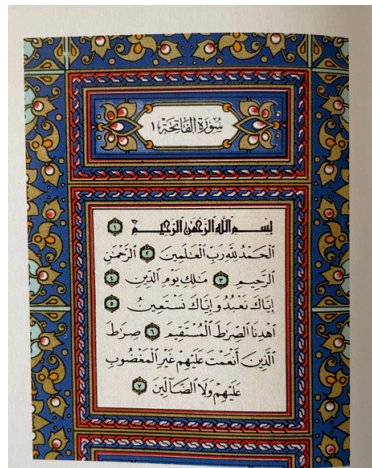 سُورَةُ الفَاتِحَةِ ١
بِسْمِ اللَّهِ الرَّحْمَٰنِ الرَّحِيمِ ١
الْحَمْدُ لِلَّهِ رَبِّ الْعَٰلَمِينَ ٢ الرَّحْمَٰنِ
الرَّحِيمِ ٣ مَٰلِكِ يَوْمِ الدِّينِ ٤
إِيَّاكَ نَعْبُدُ وَإِيَّاكَ نَسْتَعِينُ ٥
اهْدِنَا الصِّرَٰطَ الْمُسْتَقِيمَ ٦ صِرَٰطَ
الَّذِينَ أَنْعَمْتَ عَلَيْهِمْ غَيْرِ الْمَغْضُوبِ
عَلَيْهِمْ وَلَا الضَّالِّينَ ٧